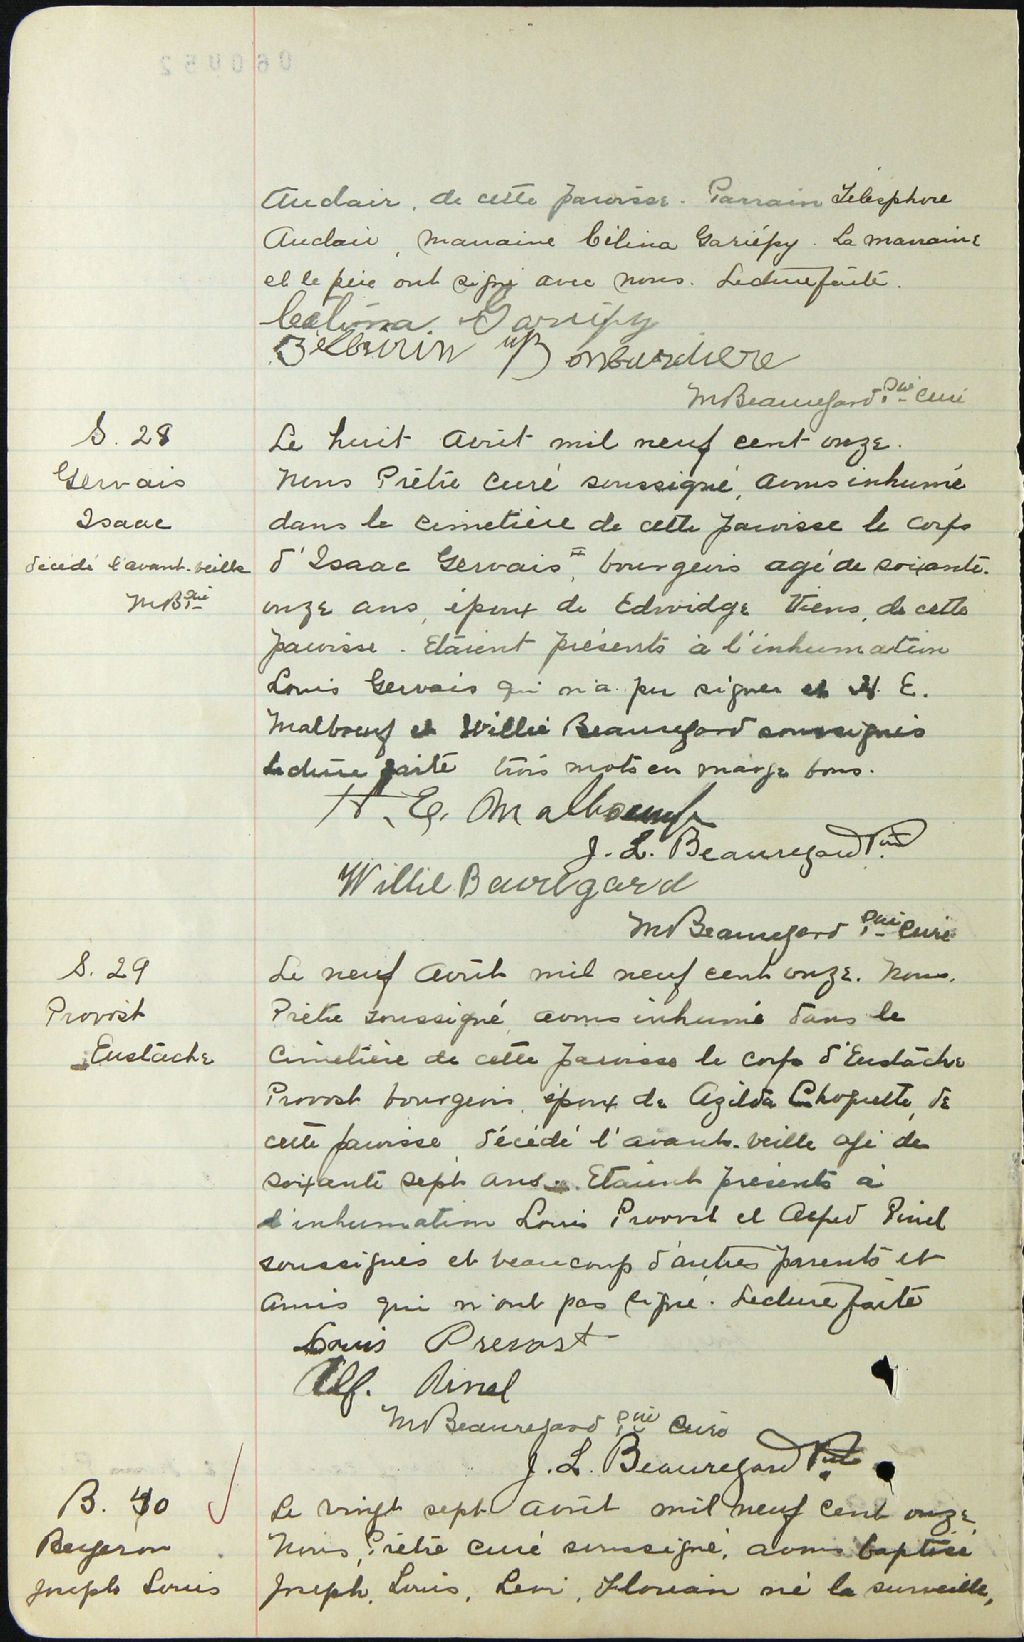 060052
Auclair, de cette paroisse. Parrain Télesphore
Auclair, marraine Célina Gariépy. La marraine
et le père ont signé avec nous. Lecture faite.
Celina Gariépy
Bombardiere
M Beauregard Ptre Curé
S. 28
Gervais
Isaac
décédé l'avant-veille
MB Ptre
Le huit août mil neuf cent onze.
Nous Prêtre Curé soussigné, avons inhumé
dans le cimetière de cette paroisse le corps
d'Isaac Gervais #, bourgeois agé de soixante-
onze ans, époux de Edwidge Viens, de cette
paroisse. Etaient présents à l'inhumation
Louis Gervais qui n'a pu signer et H. E.
Malboeuf et Willie Beauregard soussignés
Lecture faite trois mots en marge bons.
H. E. Malboeuf
J. L. Beauregard Ptre
Willie Beauregard
M Beauregard Ptre Curé
S. 29
Provost
Eustache
Le neuf août mil neuf cent onze. Nous,
Prêtre soussigné, avons inhumé dans le
cimetière de cette paroisse le corps d'Eustache
Provost bourgeois, époux de Azilda Choquette, de
cette paroisse, décédé l'avant-veille agé de
soixante sept ans. Etaient présents à
l'inhumation Louis Provost et Alfred Pinel
soussignés et beaucoup d'autres parents et
amis qui n'ont pas signé. Lecture faite
Louis Prevost
Alf. Pinel
M Beauregard Ptre Curé
J. L. Beauregard Ptre
B. 40
Bergeron
Joseph Louis
Le vingt sept août mil neuf cent onze,
Nous, Prêtre curé soussigné, avons baptisé
Joseph, Louis, Levi, Florian né la surveille,